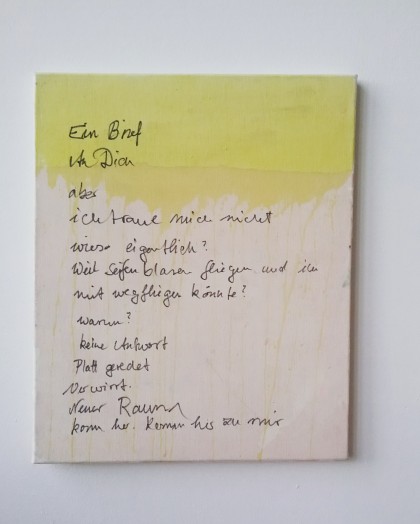 Ein Brief
An Dich
aber
ich traue mich nicht
wieso eigentlich?
Weil Seifenblasen fliegen und ich
mit wegfliegen könnte?
warum?
keine Antwort
Platt geredet
Verwirrt.
Neuer Raum
komm her. Komm her zu mir